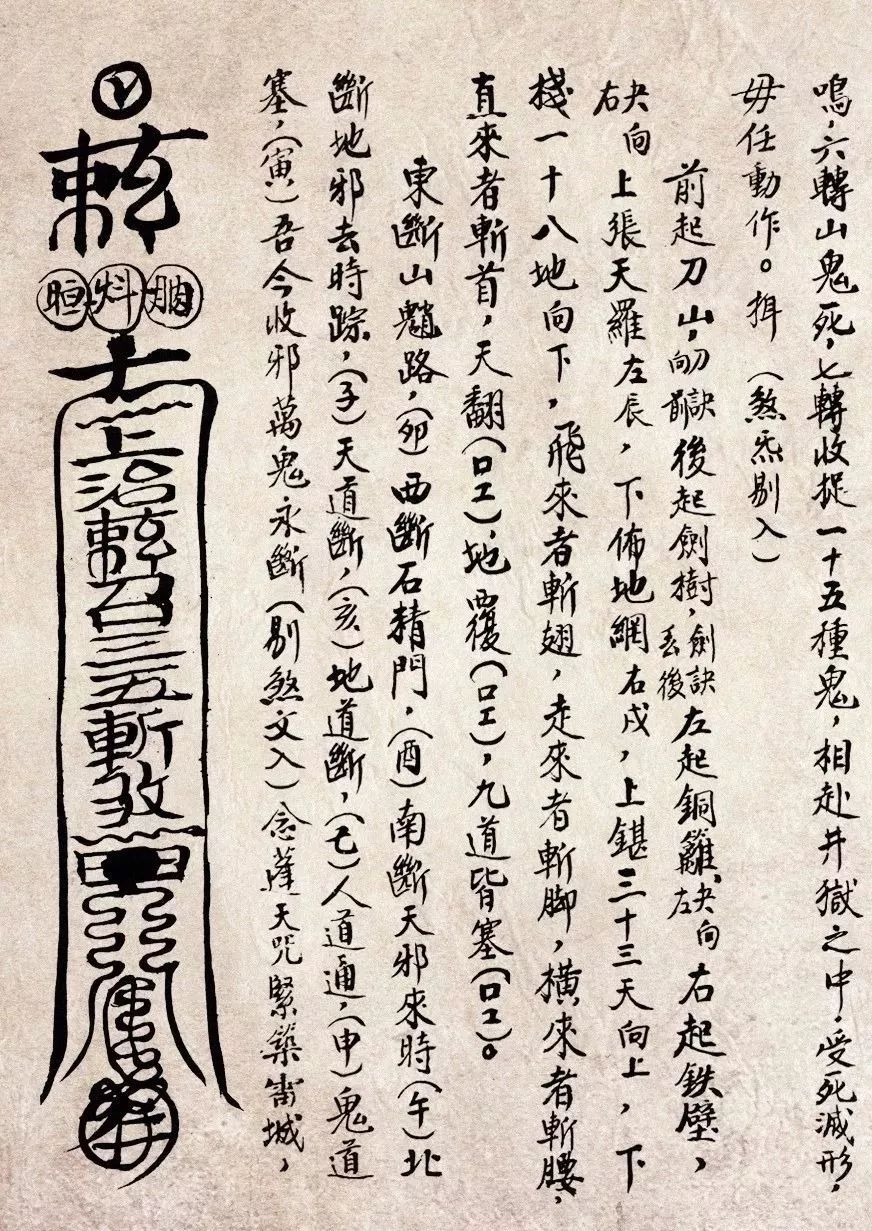 鳴，六轉山鬼死，七轉收捉一十五種鬼，相赴井獄之中，受死滅形，
毋任動作。揖（煞炁剔入）
前起刀山，向前刀訣後起劍樹，劍訣丟後左起銅籬，訣向左右起鉄壁，
訣向右上張天羅左辰，下佈地網右戌，上鍖三十三天向上，下
棧一十八地向下，飛來者斬翅，走來者斬脚，橫來者斬腰，
直來者斬首，天翻（口工），地覆（口工），九道皆塞（口工）。
東斷山魈路，（卯）西斷石精門，（酉）南斷天邪來時（午）北
斷地邪去時踪，（子）天道斷，（亥）地道斷，（巳）人道通，（申）鬼道
塞，（寅）吾今收邪萬鬼永斷（剔煞文入）念蓬天咒緊築宙城，
敕
上治敕召三五斬煞